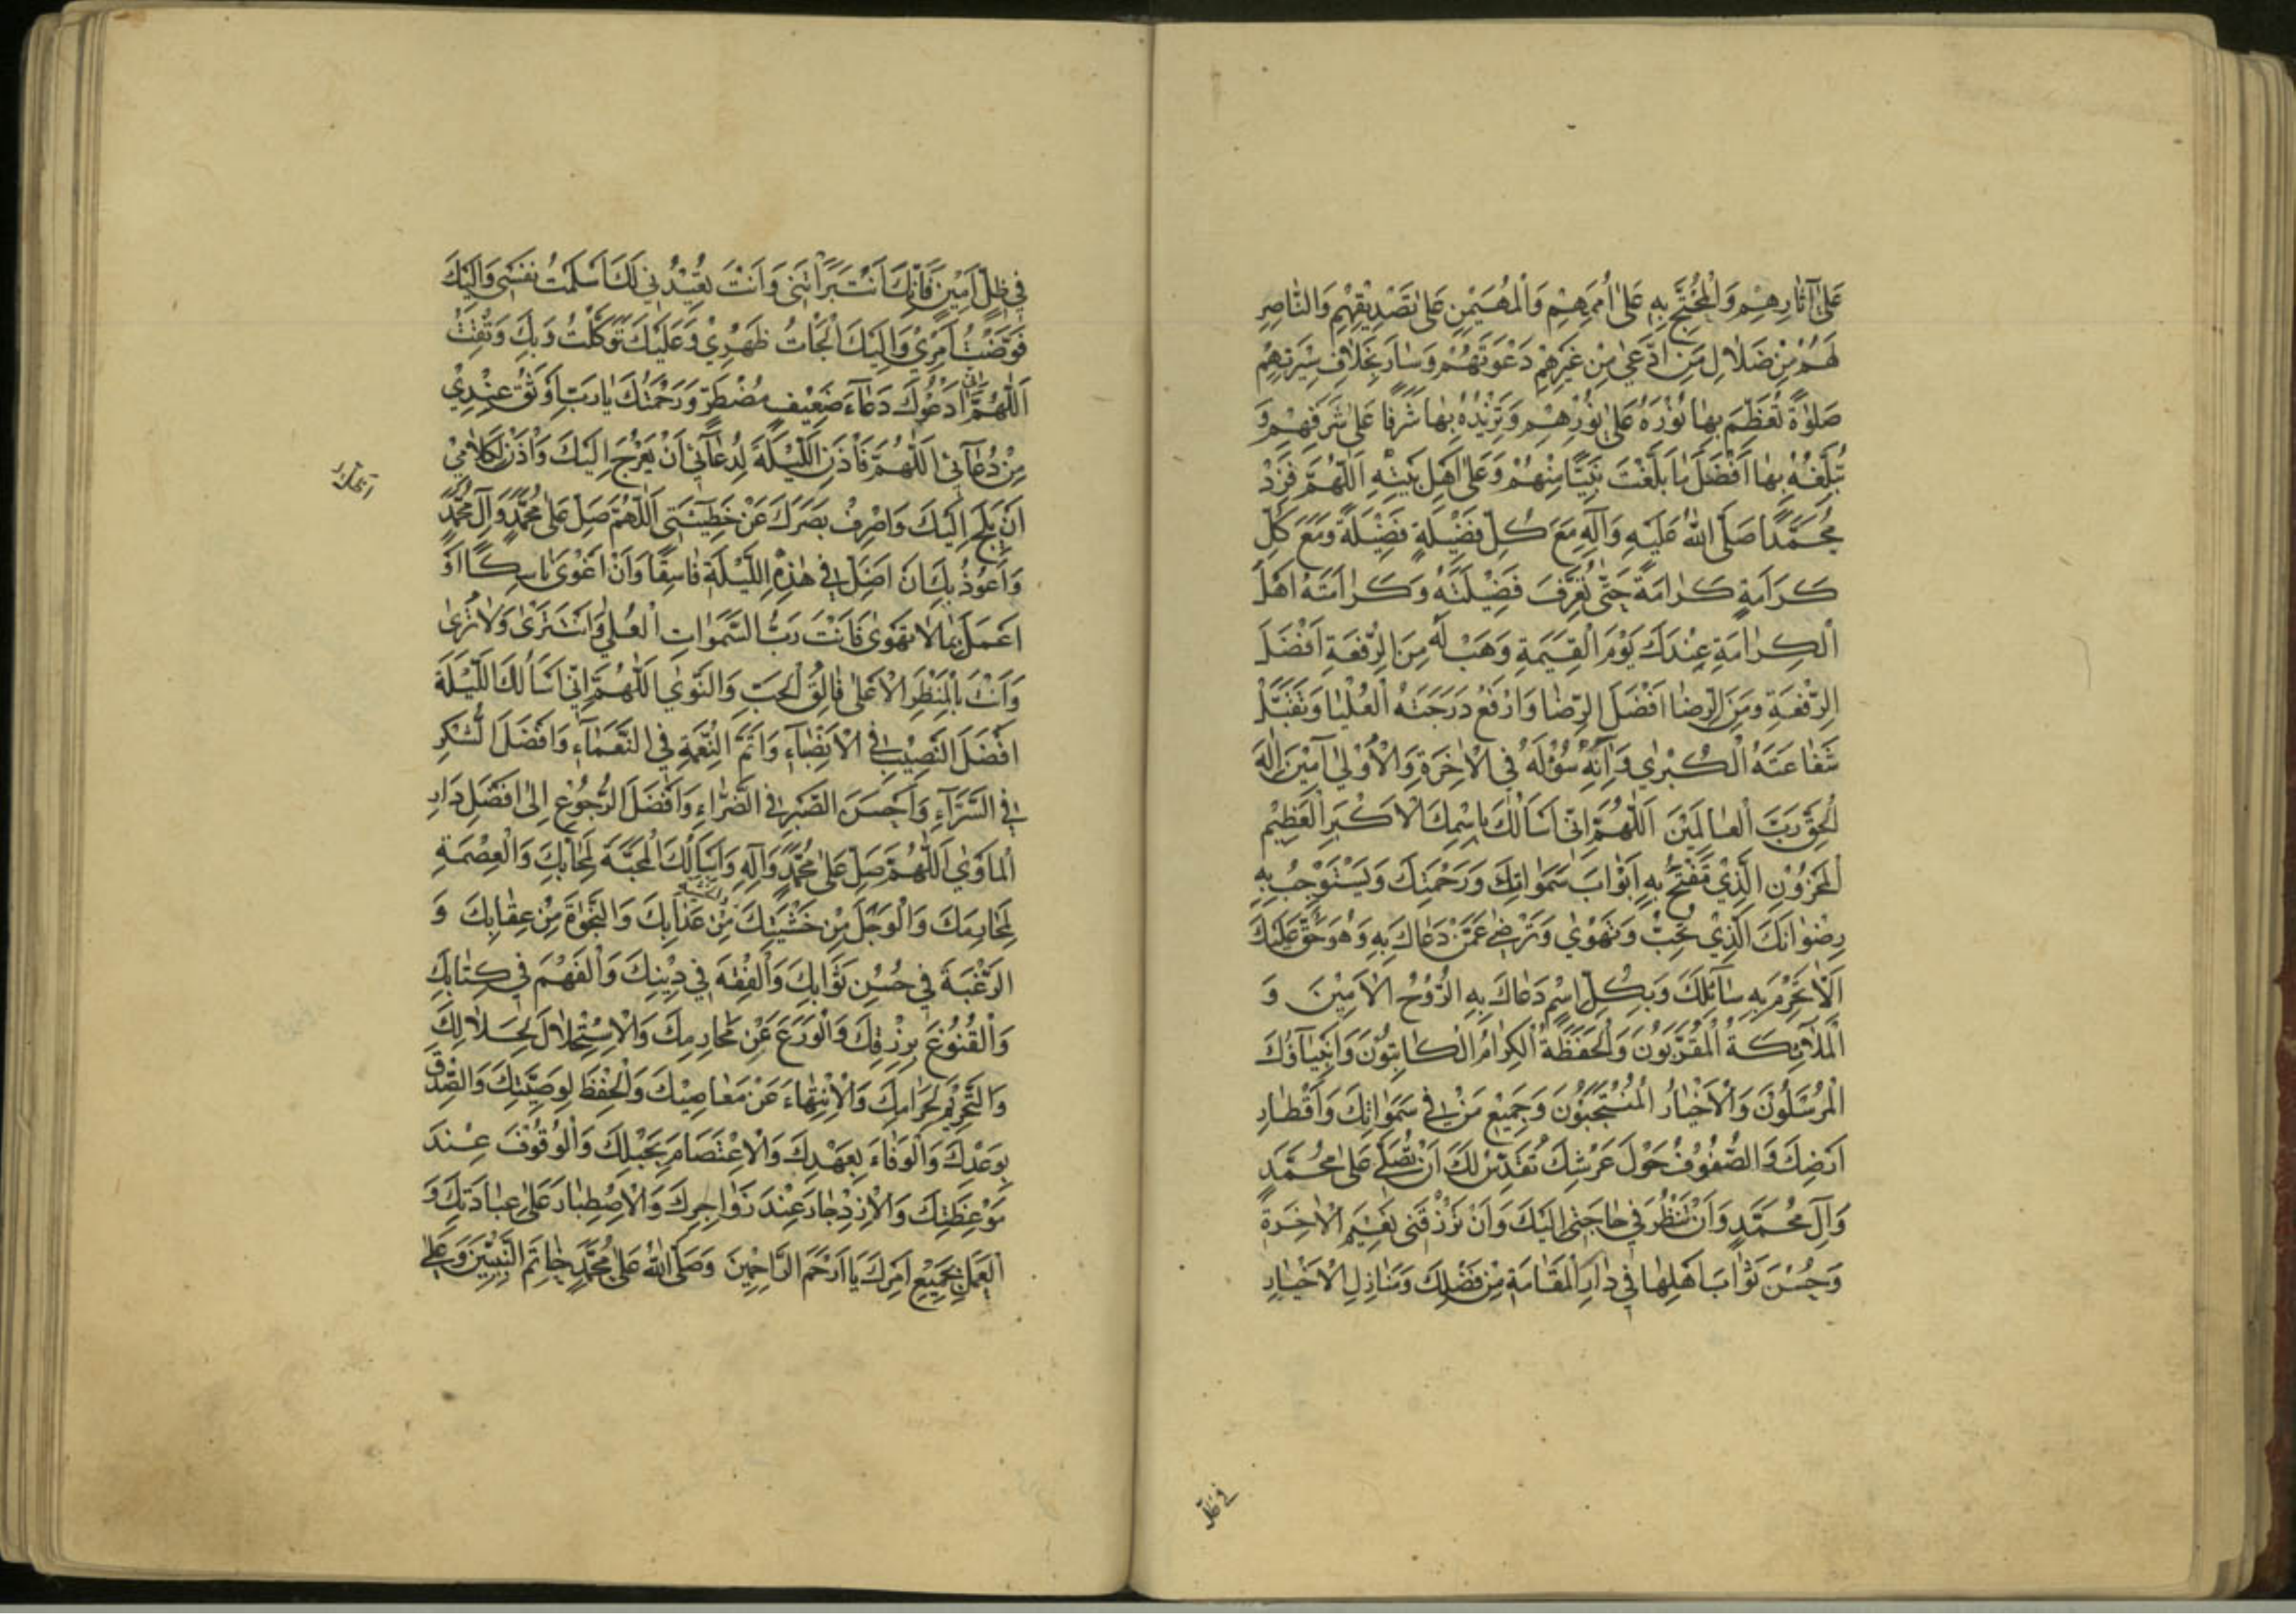 عَلىٰ آثارِهِمْ وَالْمُحْتَجِّ بِهِ عَلىٰ اُمَمِهِمْ وَالْمُهَيْمِنِ عَلىٰ تَصْدِيْقِهِمْ وَالنّاصِرِ
لَهُمْ مِنْ ضَلالِ مَنِ ادَّعىٰ مِنْ غَيْرِهِمْ دَعْوَتَهُمْ وَسٰارَ بِخِلافِ سِيْرَتِهِمْ
صَلوٰةً تُعَظِّمُ بِهٰا نُوْرَهُ عَلىٰ نُوْرِهِمْ وَتَزِيْدُهُ بِهٰا شَرَفًا عَلىٰ شَرَفِهِمْ وَ
تُبَلِّغُهُ بِهٰا اَفْضَلَ مٰا بَلَّغْتَ نَبِيًّا مِنْهُمْ وَعَلىٰ اَهْلِ بَيْتِهِ اَللّٰهُمَّ فَزِدْ
مُحَمَّدًا صَلَّى اللّٰهُ عَلَيْهِ وَآلِهِ مَعَ كُلِّ فَضِيْلَةٍ فَضِيْلَةً وَمَعَ كُلِّ
كَرٰامَةٍ كَرٰامَةً حَتّىٰ تُعَرِّفَ فَضِيْلَتَهُ وَكَرٰامَتَهُ اَهْلَ
الْكِرٰامَةِ عِنْدَكَ يَوْمَ الْقِيٰمَةِ وَهَبْ لَهُ مِنَ الرِّفْعَةِ اَفْضَلَ
الرِّفْعَةِ وَمِنَ الرِّضٰا اَفْضَلَ الرِّضٰا وَارْفَعْ دَرَجَتَهُ الْعُلْيٰا وَتَقَبَّلْ
شَفٰاعَتَهُ الْكُبْرىٰ وَآتِهِ سُؤْلَهُ فِي الْاٰخِرَةِ وَالْاُوْلىٰ آمِيْنَ اِلٰهَ
الْحَقِّ رَبَّ الْعٰالَمِيْنَ اَللّٰهُمَّ اِنّي اَسْاَلُكَ بِاسْمِكَ الْاَكْبَرِ الْعَظِيْمِ
الْمَخْزُوْنِ الَّذِيْ تَفْتَحُ بِهِ اَبْوٰابَ سَمٰوٰاتِكَ وَرَحْمَتِكَ وَيَسْتَوْجِبُ بِهِ
رِضْوٰانَكَ الَّذِيْ تُحِبُّ وَتَهْوىٰ وَتَرْضىٰ عَمَّنْ دَعٰاكَ بِهِ وَهُوَ حَقٌّ عَلَيْكَ
اَلّا تَحْرِمَ بِهِ سٰائِلَكَ وَبِكُلِّ اسْمٍ دَعٰاكَ بِهِ الرُّوْحُ الْاَمِيْنُ وَ
الْمَلٰائِكَةُ الْمُقَرَّبُوْنَ وَالْحَفَظَةُ الْكِرٰامُ الْكٰاتِبُوْنَ وَاَنْبِيٰآؤُكَ
الْمُرْسَلُوْنَ وَالْاَخْيٰارُ الْمُنْتَجَبُوْنَ وَجَمِيْعُ مَنْ فِي سَمٰوٰاتِكَ وَاَقْطٰارِ
اَرْضِكَ وَالصُّفُوْفُ حَوْلَ عَرْشِكَ تُقَدِّسُ لَكَ اَنْ تُصَلِّيَ عَلىٰ مُحَمَّدٍ
وَآلِ مُحَمَّدٍ وَاَنْ تَنْظُرَ فِي حٰاجَتِي اِلَيْكَ وَاَنْ تَرْزُقَنِي نَعِيْمَ الْاٰخِرَةِ
وَحُسْنَ ثَوٰابِ اَهْلِهٰا فِي دٰارِ الْمُقٰامَةِ مِنْ فَضْلِكَ وَمَنٰازِلِ الْاَخْيٰارِ
في ظلّ
فِي ظِلٍّ اَمِيْنٍ فَاِنَّكَ اَنْتَ بَرَأْتَنِي وَاَنْتَ تُعِيْدُنِي لَكَ اَسْلَمْتُ نَفْسِي وَاِلَيْكَ
فَوَّضْتُ اَمْرِيْ وَاِلَيْكَ اَلْجَأْتُ ظَهْرِيْ وَعَلَيْكَ تَوَكَّلْتُ وَبِكَ وَثِقْتُ
اَللّٰهُمَّ اِنّي اَدْعُوْكَ دُعٰآءَ ضَعِيْفٍ مُضْطَرٍّ وَرَحْمَتُكَ يٰا رَبِّ اَوْثَقُ عِنْدِيْ
مِنْ دُعٰآئِي اَللّٰهُمَّ فَأْذَنِ اللَّيْلَةَ لِدُعٰآئِي اَنْ يَعْرُجَ اِلَيْكَ وَأْذَنْ لِكَلٰامِيْ
اَنْ يَلِجَ اِلَيْكَ وَاصْرِفْ بَصَرَكَ عَنْ خَطِيْئَتِي اَللّٰهُمَّ صَلِّ عَلىٰ مُحَمَّدٍ وَآلِ مُحَمَّدٍ
وَاَعُوْذُ بِكَ اَنْ اَضِلَّ فِي هٰذِهِ اللَّيْلَةِ فٰاسِقًا وَاَنْ اَغْوىٰ نٰاسِكًا اَوْ
اَعْمَلَ بِمٰا لٰا تَهْوىٰ فَاَنْتَ رَبُّ السَّمٰوٰاتِ الْعُلىٰ وَاَنْتَ تَرىٰ وَلٰا تُرىٰ
وَاَنْتَ بِالْمَنْظَرِ الْاَعْلىٰ فٰالِقُ الْحَبِّ وَالنَّوىٰ اَللّٰهُمَّ اِنّي اَسْاَلُكَ اللَّيْلَةَ
اَفْضَلَ النَّصِيْبِ فِي الْاَنْصِبٰآءِ وَاَتَمَّ النِّعْمَةِ فِي النَّعْمٰآءِ وَاَفْضَلَ الشُّكْرِ
فِي السَّرّآءِ وَاَحْسَنَ الصَّبْرِ فِي الضَّرّٰاءِ وَاَفْضَلَ الرُّجُوْعِ اِلىٰ اَفْضَلِ دٰارِ
الْمَأْوىٰ اَللّٰهُمَّ صَلِّ عَلىٰ مُحَمَّدٍ وَآلِهِ وَاَسْاَلُكَ الْمَحَبَّةَ لِمَحٰابِّكَ وَالْعِصْمَةَ
لِمَحٰارِمِكَ وَالْوَجَلَ مِنْ خَشْيَتِكَ مِنْ عَذٰابِكَ وَالنَّجٰوةَ مِنْ عِقٰابِكَ وَ
الرَّغْبَةَ فِي حُسْنِ ثَوٰابِكَ وَالْفِقْهَ فِي دِيْنِكَ وَالْفَهْمَ فِي كِتٰابِكَ
وَالْقُنُوْعَ بِرِزْقِكَ وَالْوَرَعَ عَنْ مَحٰارِمِكَ وَالْاِسْتِحْلٰالَ لِحَلٰالِكَ
وَالتَّحْرِيْمَ لِحَرٰامِكَ وَالْاِنْتِهٰاءَ عَنْ مَعٰاصِيْكَ وَالْحِفْظَ لِوَصِيَّتِكَ وَالصِّدْقَ
بِوَعْدِكَ وَالْوَفٰاءَ بِعَهْدِكَ وَالْاِعْتِصٰامَ بِحَبْلِكَ وَالْوُقُوْفَ عِنْدَ
مَوْعِظَتِكَ وَالْاِزْدِجٰارَ عِنْدَ زَوٰاجِرِكَ وَالْاِصْطِبٰارَ عَلىٰ عِبٰادَتِكَ وَ
الْعَمَلَ بِجَمِيْعِ اَمْرِكَ يٰا اَرْحَمَ الرّٰاحِمِيْنَ وَصَلَّى اللّٰهُ عَلىٰ مُحَمَّدٍ خٰاتَمِ النَّبِيِّيْنَ وَعَلىٰ